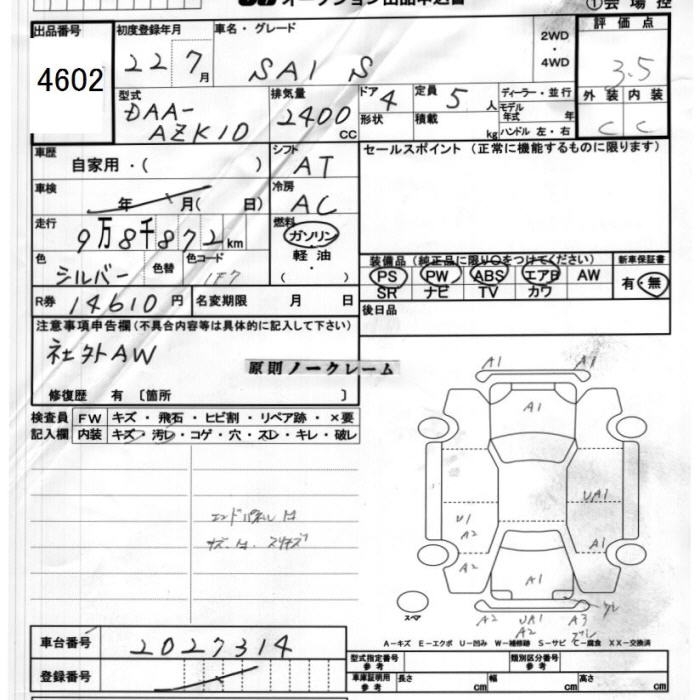 オークション出品申込書
①会場控
出品番号
4602
初度登録年月
22 7月
車名・グレード
SAI S
2WD
・
4WD
評価点
3.5
外装 内装
C C
型式
DAA-
AZK10
排気量
2400
CC
ドア 4
形状
定員 5 人
積載 kg
ディーラー・並行
モデル
年式 年
ハンドル 左・右
車歴
自家用・( )
シフト
AT
セールスポイント(正常に機能するものに限ります)
車検
年 月( 日)
冷房
AC
走行
9万8千872km
燃料
ガソリン
軽油
・
( )
色
シルバー
色替
色コード
1F7
装備品(純正品に限り○をつけてください)
PS PW ABS エアB AW
SR ナビ TV カワ
新車保証書
有・無
R券 14610円
名変期限 月 日
後日品
注意事項申告欄(不具合内容等は具体的に記入して下さい)
社外AW
原則ノークレーム
修復歴 有 〔箇所 〕
検査員 FW キズ・飛石・ヒビ割・リペア跡・×要
記入欄 内装 キズ・汚レ・コゲ・穴・スレ・キレ・破レ
エンドパネル
A1 A1
A1
UA1
U1
A2
A1
A2
A1
スペア
A2 UA1 A3
A2
A-キズ E-エクボ U-凹み W-補修跡 S-サビ C-腐食 XX-交換済
車台番号
2027314
登録番号
型式指定番号
参考
類別区分番号
参考
車庫証明用
参考
長さ cm
幅 cm
高さ cm